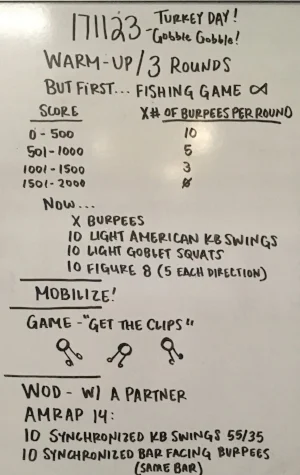 171123 - TURKEY DAY!
Gobble Gobble!
WARM-UP/3 ROUNDS
BUT FIRST... FISHING GAME
SCORE X# OF BURPEES PER ROUND
0 - 500 10
501 - 1000 5
1001 - 1500 3
1501 - 2000 0
NOW...
X BURPEES
10 LIGHT AMERICAN KB SWINGS
10 LIGHT GOBLET SQUATS
10 FIGURE 8 (5 EACH DIRECTION)
MOBILIZE!
GAME - "GET THE CLIPS"
WOD - W/ A PARTNER
AMRAP 14:
10 SYNCHRONIZED KB SWINGS 55/35
10 SYNCHRONIZED BAR FACING BURPEES
(SAME BAR)